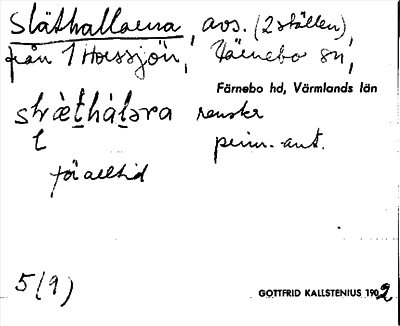 Släthallarna, avs. (2 ställen),
från 1 Horssjön, Värnebo sn,
Färnebo hd, Värmlands län
slràt̲hàl̲əra renskr
t penn. ant.
för alltid
5 (9)
GOTTFRID KALLSTENIUS 1902